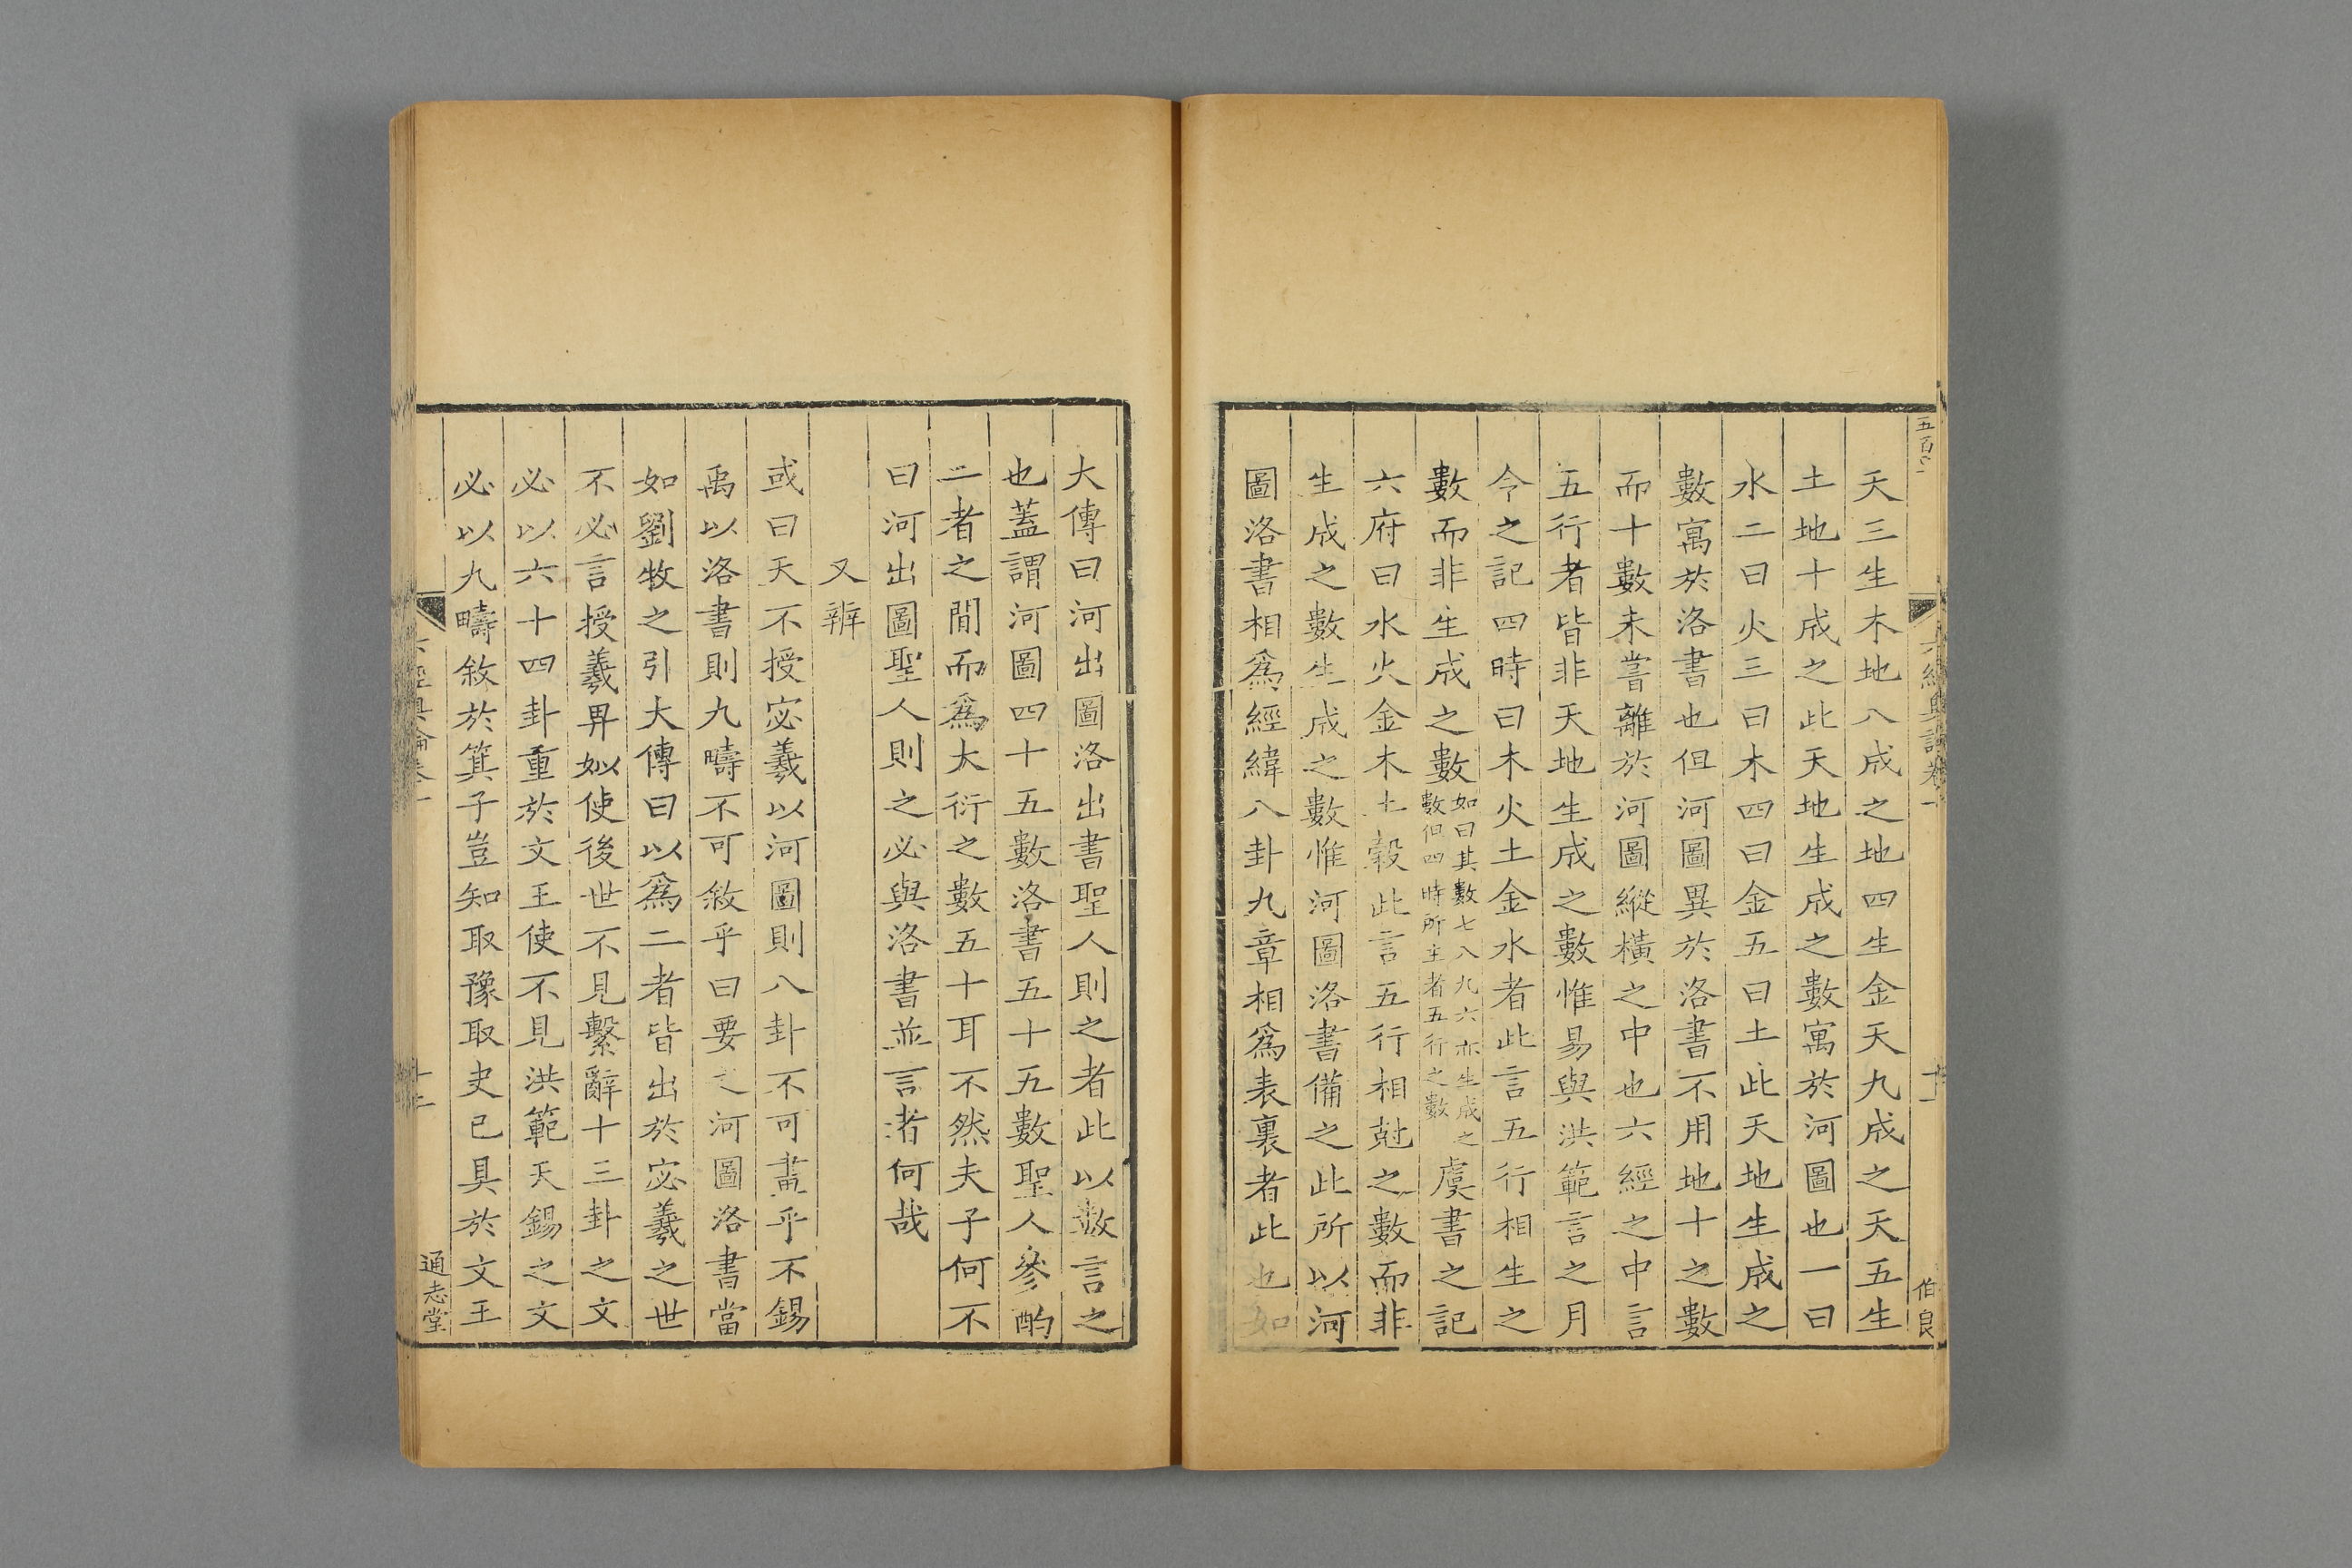 天三生木地八成之地四生金天九成之天五生
土地十成之此天地生成之數寓於河圖也一曰
水二曰火三曰木四曰金五曰土此天地生成之
數寓於洛書也但河圖異於洛書不用地十之數
而十數未嘗離於河圖縱橫之中也六經之中言
五行者皆非天地生成之數惟易與洪範言之月
令之記四時曰木火土金水者此言五行相生之
數而非生成之數如曰其數七八九六亦生成之數但四時所主者五行之數虞書之記
六府曰水火金木土穀此言五行相尅之數而非
生成之數生成之數惟河圖洛書備之此所以河
圖洛書相爲經緯八卦九章相爲表裏者此也如
伯良
大傳曰河出圖洛出書聖人則之者此以數言之
也蓋謂河圖四十五數洛書五十五數聖人參酌
二者之閒而爲大衍之數五十耳不然夫子何不
曰河出圖聖人則之必與洛書並言者何哉
又辨
或曰天不授宓羲以河圖則八卦不可畫乎不錫
禹以洛書則九疇不可敘乎曰要之河圖洛書當
如劉牧之引大傳曰以爲二者皆出於宓羲之世
不必言授羲畀姒使後世不見繫辭十三卦之文
必以六十四卦重於文王使不見洪範天錫之文
必以九疇敘於箕子豈知取豫取夬已具於文王
通志堂